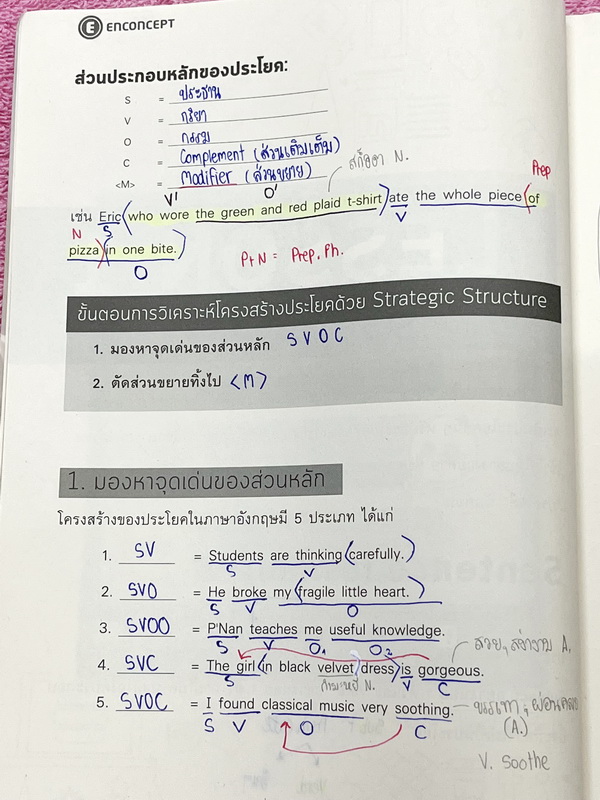 ENCONCEPT
ส่วนประกอบหลักของประโยค:
S = ประธาน
V = กริยา
O = กรรม
C = Complement (ส่วนเติมเต็ม)
<M> = Modifier (ส่วนขยาย)
สก็อตา N.
V' O' Prep
เช่น Eric (who wore the green and red plaid t-shirt) ate the whole piece (of
N S V
pizza) (in one bite.)
O
P+N = Prep. Ph.
ขั้นตอนการวิเคราะห์โครงสร้างประโยคด้วย Strategic Structure
1. มองหาจุดเด่นของส่วนหลัก S V O C
2. ตัดส่วนขยายทิ้งไป <M>
1. มองหาจุดเด่นของส่วนหลัก
โครงสร้างของประโยคในภาษาอังกฤษมี 5 ประเภท ได้แก่
1. SV = Students are thinking (carefully.)
S V
2. SVO = He broke my (fragile little heart.)
S V O
3. SVOO = P'Nan teaches me useful knowledge.
S V O1 O2
สวย, สง่างาม A.
4. SVC = The girl (in black velvet dress) is gorgeous.
S กำมะหยี่ N. V C
5. SVOC = I found classical music very soothing.
S V O C
(A.)
V. Soothe